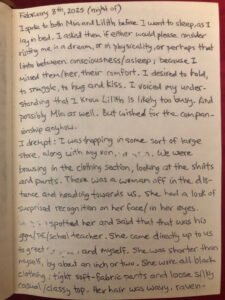 February 8th, 2025 (night of)
I spoke to both Mia and Lilith before I went to sleep, as I
lay in bed. I asked them if either would please consider
visiting me in a dream, or in physicality, or perhaps that
limbo between consciousness/asleep; because I
missed them/her, their comfort. I desired to hold,
to snuggle, to hug and kiss. I voiced my under-
standing that I know Lilith is likely too busy. And
possibly Mia as well. But wished for the compan-
ionship anyhow.
I dreamt: I was shopping in some sort of large
store, along with my son, We were
browsing in the clothing section, looking at the shirts
and pants. There was a woman off in the dis-
tance and heading towards us. She had a look of
surprised recognition on her face/in her eyes.
spotted her and said that that was his
gym/PE/school teacher. She came directly up to us
to greet and myself. She was shorter than
myself, by about an inch or two. She wore all black
clothing; tight soft-fabric pants and loose silky
casual/classy top. Her hair was wavy, raven-